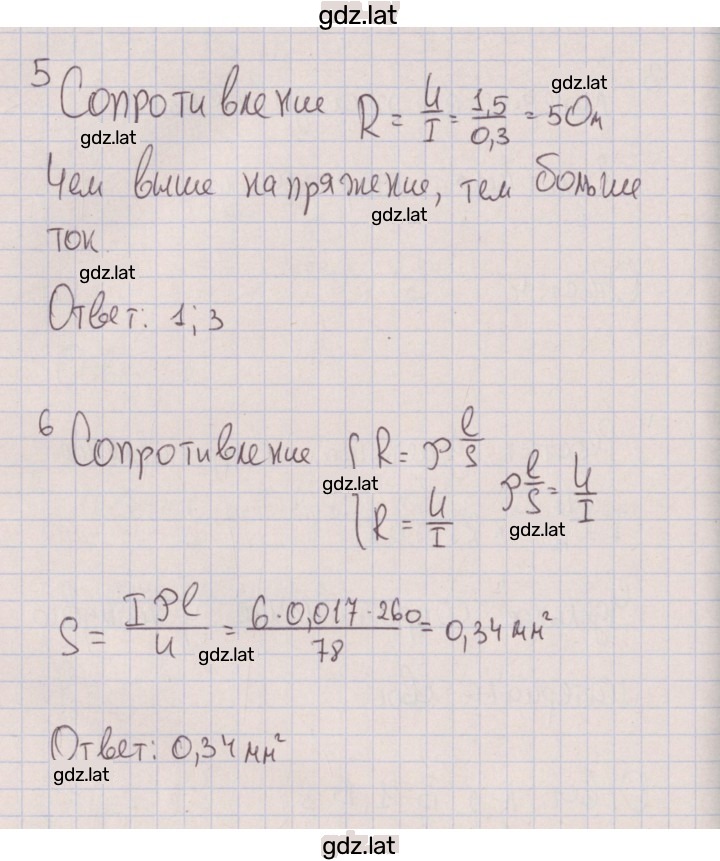 gdz.lat
5 Сопротивление R = U/I = 1,5/0,3 = 5 Ом
gdz.lat
gdz.lat
Чем выше напряжение, тем больше
gdz.lat
ток.
gdz.lat
Ответ: 1; 3
6 Сопротивление { R = ρ l/S
R = U/I
ρ l/S = U/I
gdz.lat
gdz.lat
S = Iρl/U = 6·0,017·260/78 = 0,34 мм²
gdz.lat
Ответ: 0,34 мм²
gdz.lat
gdz.lat